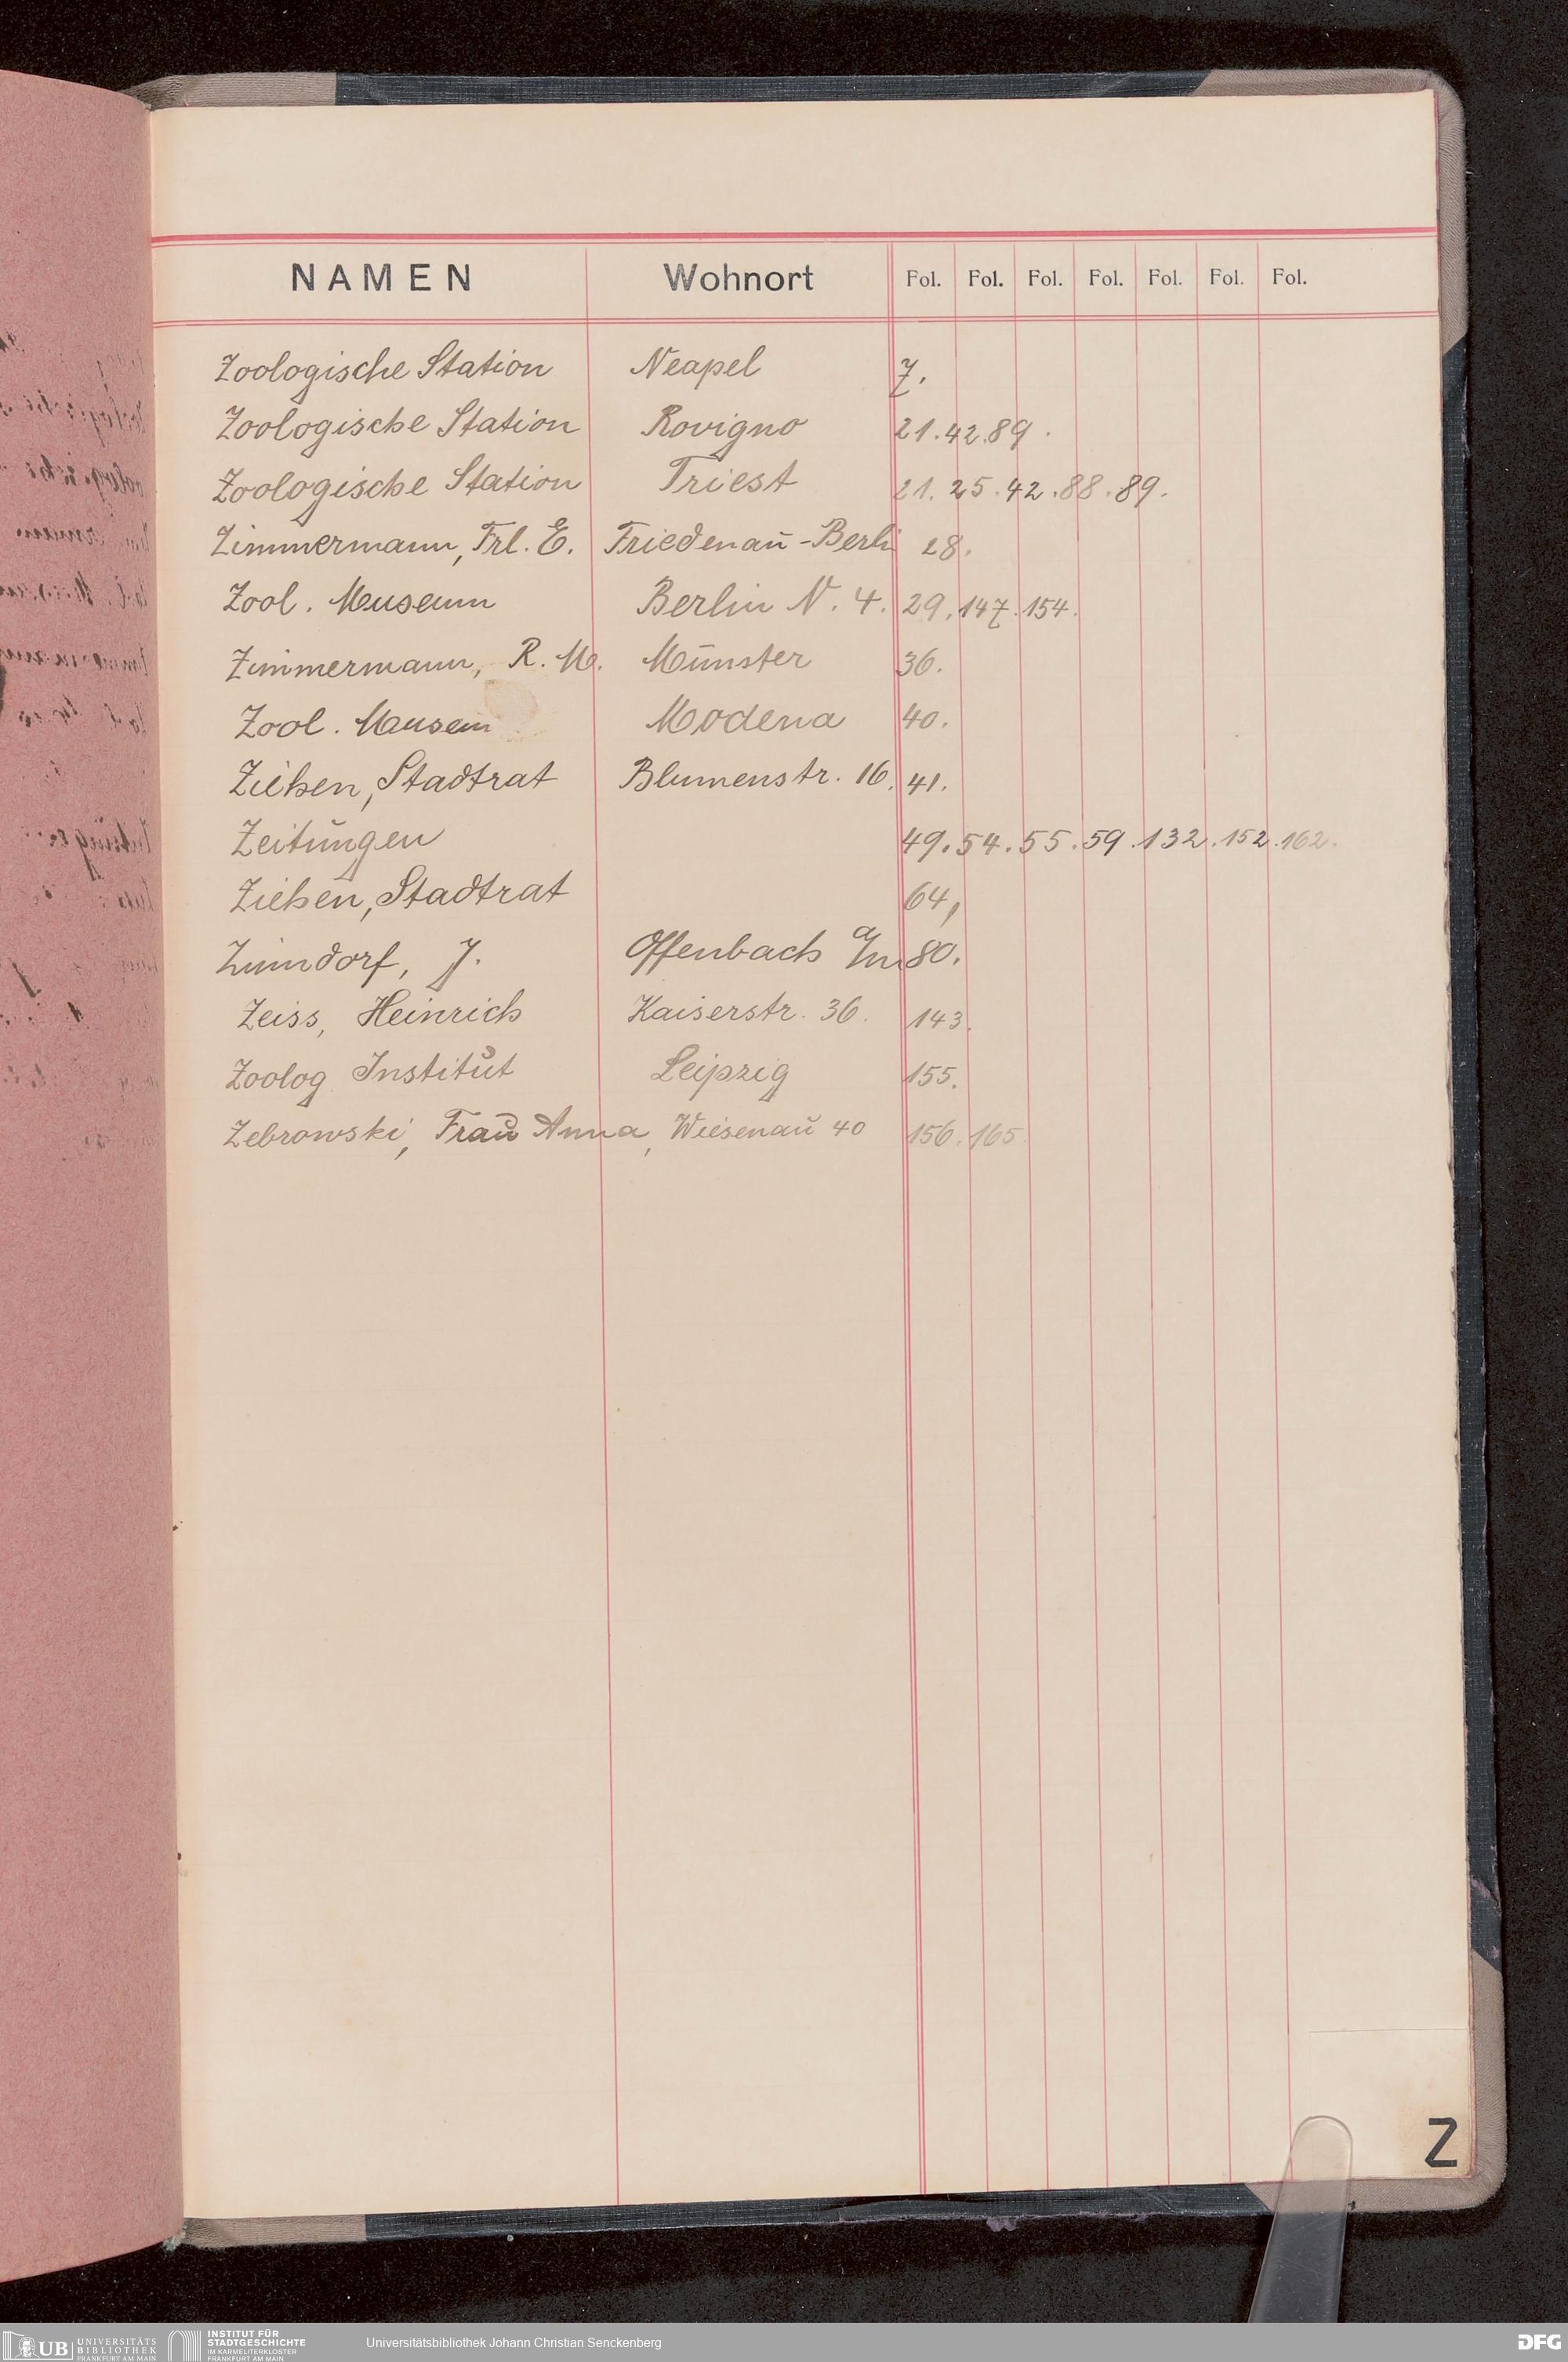 NAMEN Wohnort Fol. Fol. Fol. Fol. Fol. Fol. Fol.
Zoologische Station Neapel 7.
Zoologische Station Rovigno 21. 42. 89.
Zoologische Station Triest 21. 25. 42. 88. 89.
Zimmermann, Frl. E. Friedenau-Berli 28.
Zool. Museum Berlin N. 4. 29. 147. 154.
Zimmermann, R. Münster 36.
Zool. Museum Modena 40.
Ziehen, Stadtrat Blumenstr. 16. 41.
Zeitungen 49. 54. 55. 59. 132. 152. 162.
Ziehen, Stadtrat 64,
Zündorf, J. Offenbach a/m 80.
Zeiss, Heinrich Kaiserstr. 36. 143.
Zoolog. Institut Leipzig 155.
Zebrowski, Frau Anna, Wiesenau 40 156. 165.
Z
UB UNIVERSITÄTS BIBLIOTHEK FRANKFURT AM MAIN
INSTITUT FÜR STADTGESCHICHTE IM KARMELITERKLOSTER FRANKFURT AM MAIN
Universitätsbibliothek Johann Christian Senckenberg
DFG